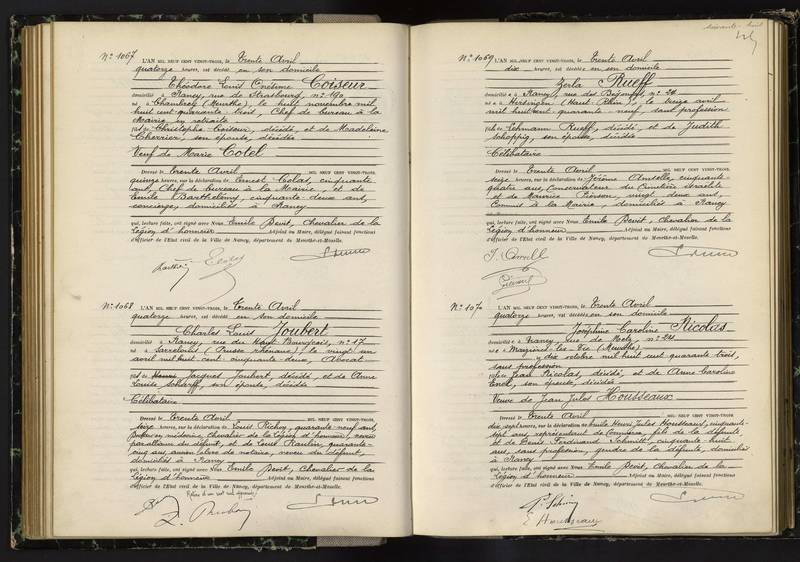 N° 1067
L'AN MIL NEUF CENT VINGT-TROIS, le Trente Avril
quatorze heures, est décédé en son domicile
Théodore Louis Onézime Coiseur
domicilié à Nancy, rue de Strasbourg, n° 190
né à Chambrey (Meurthe), le huit novembre mil
huit cent quarante trois, Chef de bureau à la
Mairie en retraite
fils de Christophe Coiseur, décédé, et de Madeleine
Cherrier, son épouse, décédée
Veuf de Marie Cotel
Dressé le Trente Avril MIL NEUF CENT VINGT-TROIS,
quinze heures, sur la déclaration de Ernest Colas, cinquante
ans, Chef de bureau à la Mairie, et de
Emile Barthélemy, cinquante deux ans,
concierge, domiciliés à Nancy
qui, lecture faite, ont signé avec Nous Emile Devit, Chevalier de la
Légion d'honneur Adjoint au Maire, délégué faisant fonctions
d'officier de l'Etat civil de la Ville de Nancy, département de Meurthe-et-Moselle.
N° 1068
L'AN MIL NEUF CENT VINGT-TROIS, le Trente Avril
quatorze heures, est décédé en son domicile
Charles Louis Joubert
domicilié à Nancy, rue du Haut Bourgeois, n° 17
né à Sarrelouis (Prusse rhénane), le vingt un
avril mil huit cent cinquante deux, Avocat
fils de Jacques Joubert, décédé, et de Anne
Louise Scharff, son épouse, décédée
Célibataire
Dressé le Trente Avril MIL NEUF CENT VINGT-TROIS,
seize heures, sur la déclaration de Louis Richon, quarante neuf ans,
Docteur en médecine, Chevalier de la Légion d'honneur, neveu
par alliance du défunt, et de Louis Paulin, quarante
cinq ans, ancien clerc de notaire, neveu du défunt,
domiciliés à Nancy
qui, lecture faite, ont signé avec Nous Emile Devit, Chevalier de la
Légion d'honneur Adjoint au Maire, délégué faisant fonctions
d'officier de l'Etat civil de la Ville de Nancy, département de Meurthe-et-Moselle.
N° 1069
L'AN MIL NEUF CENT VINGT-TROIS, le Trente Avril
dix heures, est décédée en son domicile
Zerla Rueff
domiciliée à Nancy, rue des Bégonias n° 24
née à Hirsingen (Haut Rhin), le treize avril
mil huit cent quarante neuf, sans profession
fille de Lehmann Rueff, décédé, et de Judith
Schoppig, son épouse, décédée
Célibataire
Dressé le Trente Avril MIL NEUF CENT VINGT-TROIS,
seize heures, sur la déclaration de Jérôme Amselle, cinquante
quatre ans, Conservateur du Cimetière Israélite
et de Maurice Pierson, vingt deux ans,
Commis à la Mairie, domiciliés à Nancy
qui, lecture faite, ont signé avec Nous Emile Devit, Chevalier de la
Légion d'honneur Adjoint au Maire, délégué faisant fonctions
d'officier de l'Etat civil de la Ville de Nancy, département de Meurthe-et-Moselle.
N° 1070
L'AN MIL NEUF CENT VINGT-TROIS, le Trente Avril
quatorze heures, est décédée en son domicile
Joséphine Caroline Nicolas
domiciliée à Nancy, rue de Metz, n° 24
née à Maizières-les-Vic (Meurthe)
dix octobre mil huit cent quarante trois,
sans profession
fille de Jean Nicolas, décédé, et de Anne Caroline
son épouse, décédée
Veuve de Jean Jules Housseaux
Dressé le Trente Avril MIL NEUF CENT VINGT-TROIS,
dix sept heures, sur la déclaration de Emile Henri Jules Housseaux, cinquante
sept ans, représentant de Commerce, fils de la défunte,
et de Denis Ferdinand Schmitt, cinquante huit
ans, sans profession, gendre de la défunte, domiciliés
à Nancy
qui, lecture faite, ont signé avec Nous Emile Devit, Chevalier de la
Légion d'honneur Adjoint au Maire, délégué faisant fonctions
d'officier de l'Etat civil de la Ville de Nancy, département de Meurthe-et-Moselle.